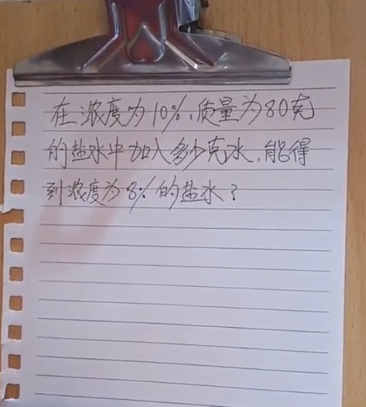 在浓度为10%,质量为80克
的盐水中加入多少克水,能得
到浓度为8%的盐水?